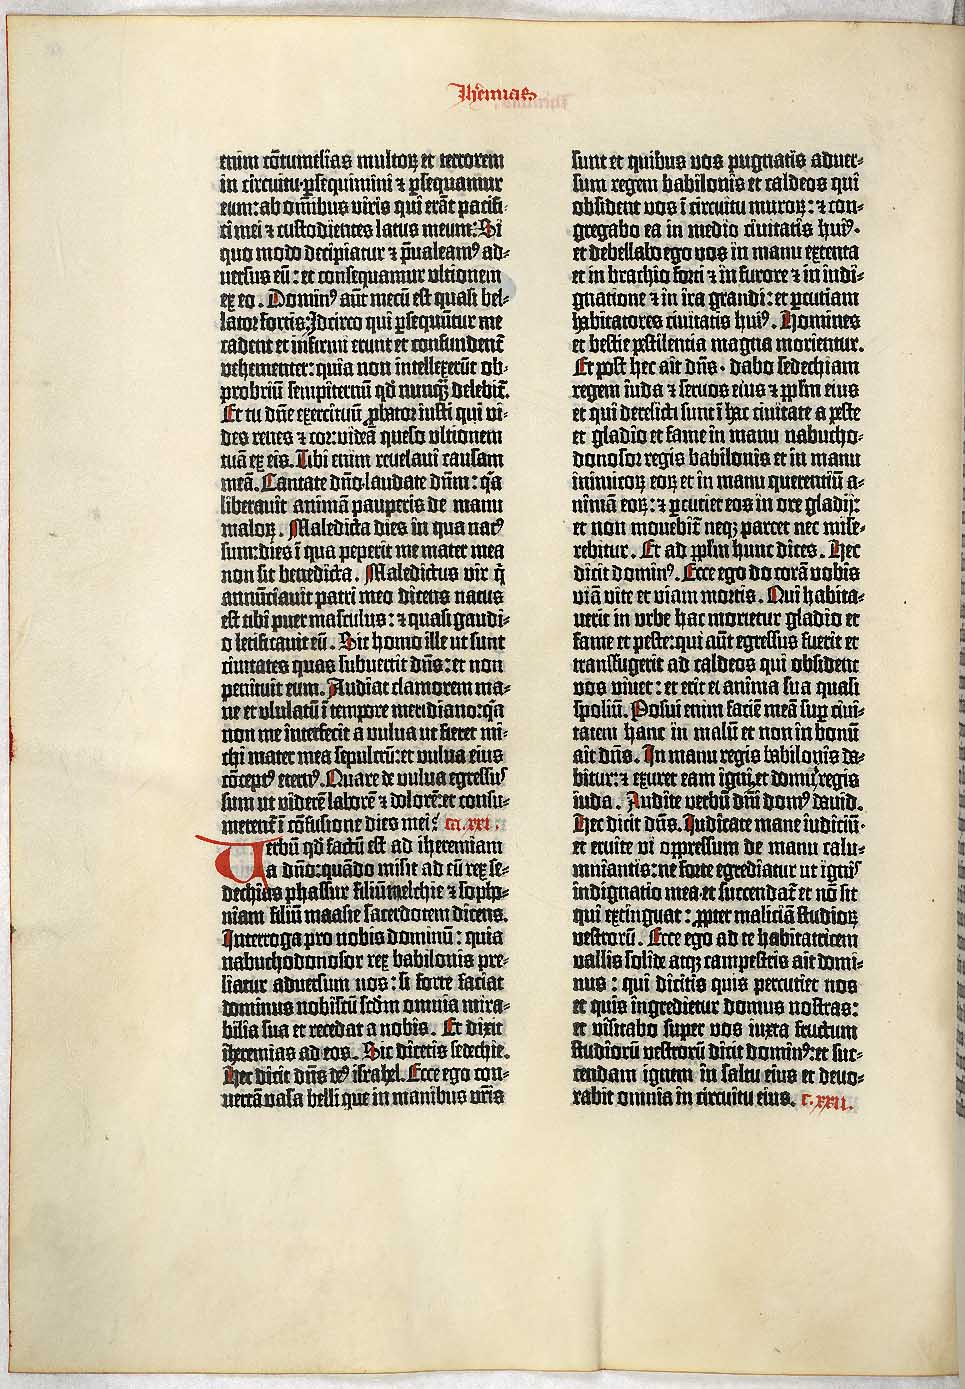 Iheremias
enim cõtumelias multoꝝ et terrorem
in circuitu·ꝑsequimini ⁊ ꝑsequamur
eum: ab omnibus viris qui erãt pacifi-
ci mei ⁊ custodientes latus meum: Si
quo modo decipiatur ⁊ p̃ualeamꝰ ad-
versus eũ: et consequamur ultionem
ex eo. Dominꝰ aũt mecũ est quasi bel-
lator fortis: Idcirco qui ꝑsequũtur me
cadent et infirmi erunt et confundent̃
vehementer: quia non intellexerũt ob-
probriũ sempiternũ qđ nunqʒ̃ delebit̃.
Et tu dñe exercituũ ꝓbator iusti qui vi-
des renes ⁊ cor: videã queso ultionem
tuã ex eis. Tibi enim revelavi causam
meã. Cantate dño·laudate dñm: q̃a
liberavit animã pauperis de manu
maloꝝ. Maledicta dies in qua natꝰ
sum: dies ĩ qua peperit me mater mea
non sit benedicta. Maledictus vir q̃
annũciavit patri meo dicens natus
est tibi puer masculus: ⁊ quasi gaudi-
o letificavit eũ. Sit homo ille ut sunt
civitates quas subvertit dñs: et non
penituit eum. Audiat clamorem ma-
ne et ululatũ ĩ tempore meridiano: q̃a
non me interfecit a vulva ut fieret mi-
chi mater mea sepulcrũ: et vulva eius
cõceptꝰ eternꝰ. Quare de vulva egressus
sum ut viderẽ laborẽ ⁊ dolorẽ: et consu-
merent̃ ĩ cõfusione dies mei? ca.xxi.
Verbũ qđ factũ est ad iheremiam
a dño: quãdo misit ad eũ rex se-
dechias phassur filiũ melchie ⁊ sopho-
niam filiũ maasie sacerdotem dicens.
Interroga pro nobis dominũ: quia
nabuchodonosor rex babilonis pre-
liatur adversum nos: si forte faciat
dominus nobiscũ scđm omnia mira-
bilia sua et recedat a nobis. Et dixit
iheremias ad eos. Sic dicetis sedechie.
Hec dicit dñs deꝰ israhel. Ecce ego con-
vertã vasa belli que in manibus vr̃is
sunt et quibus vos pugnatis adver-
sum regem babilonis et caldeos qui
obsident vos ĩ circuitu muroꝝ: ⁊ con-
gregabo ea in medio civitatis huiꝰ·
et debellabo ego vos in manu extenta
et in brachio forti ⁊ in furore ⁊ in indi-
gnatione ⁊ in ira grandi: et ꝑcutiam
habitatores civitatis huiꝰ. Homines
et bestie pestilentia magna morientur.
Et post hec ait dñs· dabo sedechiam
regem iuda ⁊ servos eius ⁊ ppl̃m eius
et qui derelicti sunt ĩ hac civitate a peste
et gladio et fame in manu nabucho-
donosor regis babilonis et in manu
inimicoꝝ eoꝝ et in manu querentiũ a-
nimã eoꝝ: ⁊ ꝑcutiet eos in ore gladij:
et non movebit̃ neqʒ parcet nec mise-
rebitur. Et ad ppl̃m hunc dices. Hec
dicit dominꝰ. Ecce ego do corã vobis
viã vite et viam mortis. Qui habita-
verit in urbe hac morietur gladio et
fame et peste: qui aũt egressus fuerit et
transfugerit ad caldeos qui obsident
vos vivet: et erit ei anima sua quasi
spoliũ. Posui enim faciẽ meã suꝑ civi-
tatem hanc in malũ et non in bonũ
ait dñs. In manu regis babilonis da-
bitur: ⁊ exuret eam igni, et domui regis
iuda. Audite verbũ dñi domꝰ david.
Hec dicit dñs. Iudicate mane iudiciũ·
et eruite vi oppressum de manu calu-
mniantis: ne forte egrediatur ut ignis
indignatio mea·et succendat̃ et nõ sit
qui extinguat: ꝓpter maliciã studioꝝ
vestrorũ. Ecce ego ad te habitatricem
vallis solide atqʒ campestris ait domi-
nus: qui dicitis quis percutiet nos
et quis ingredietur domus nostras:
et visitabo super vos iuxta fructum
studiorũ vestrorũ dicit dominꝰ: et suc-
cendam ignem in saltu eius et devo-
rabit omnia in circuitu eius. c.xxii.